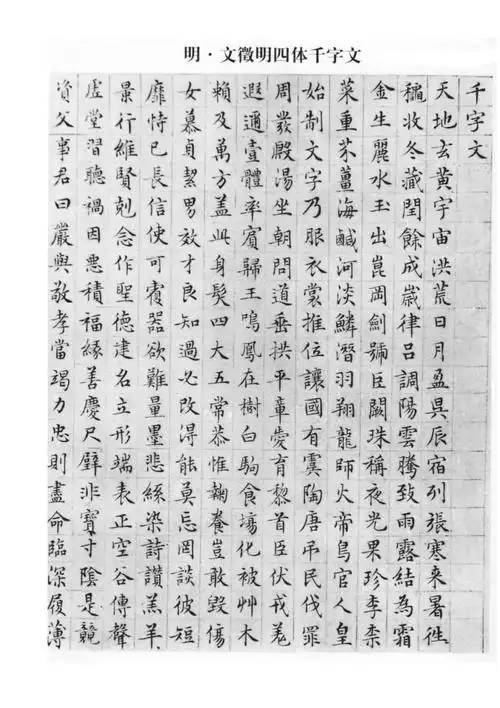 明·文徵明四体千字文
千字文
天地玄黄宇宙洪荒日月盈昃辰宿列張寒来暑徃
穐收冬藏閏餘成歲律吕調陽雲騰致雨露結為霜
金生麗水玉出崑岡劍號巨闕珠稱夜光果珍李柰
菜重芥薑海鹹河淡鱗潛羽翔龍師火帝鳥官人皇
始制文字乃服衣裳推位讓國有虞陶唐弔民伐罪
周發殷湯坐朝問道垂拱平章愛育黎首臣伏戎羌
遐邇壹體率賓歸王鳴鳳在樹白駒食場化被艸木
賴及萬方盖此身髮四大五常恭惟鞠養豈敢毀傷
女慕貞絜男效才良知過必改得能莫忘罔談彼短
靡恃已長信使可覆器欲難量墨悲絲染詩讚羔羊
景行維賢剋念作聖德建名立形端表正空谷傳聲
虛堂習聽禍因惡積福緣善慶尺璧非寶寸陰是競
資父事君曰嚴與敬孝當竭力忠則盡命臨深履薄